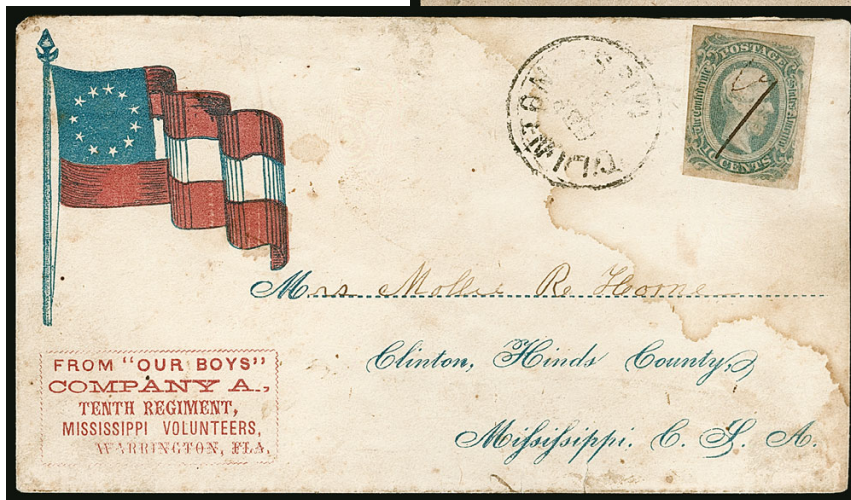 POSTAGE
The Confederate States of America
10 CENTS
Mrs Mollie R. Horne
Clinton, Hinds County,
Mississippi. C. S. A.
FROM "OUR BOYS"
COMPANY A.,
TENTH REGIMENT,
MISSISSIPPI VOLUNTEERS,
WARRINGTON, FLA.